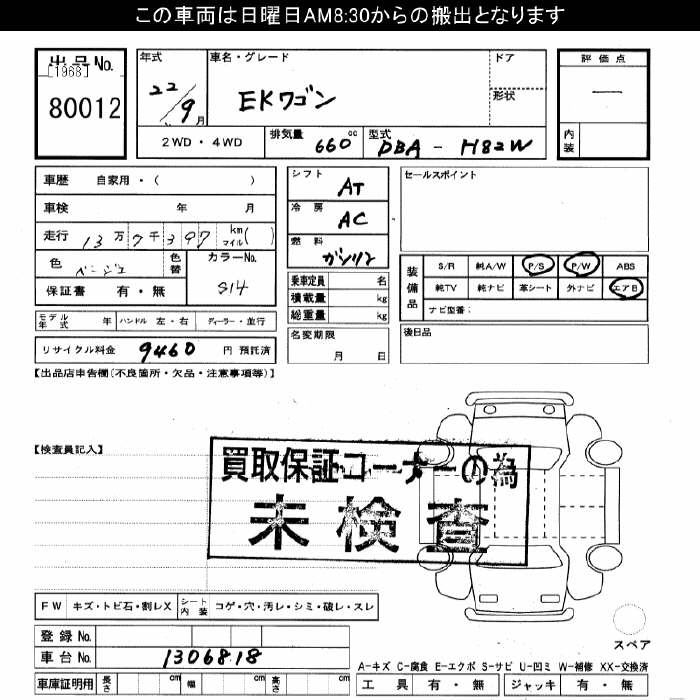 この車両は日曜日AM8:30からの搬出となります
出品No.
[1968]
80012
年式
22/9月
車名・グレード
EKワゴン
ドア
形状
評価点
—
内装
2WD・4WD
排気量 660cc
型式 DBA-H82W
車歴 自家用・( )
車検 年 月
走行 13万7千397 km マイル( )
色 ベージュ
色替
カラーNo.
S14
保証書 有・無
シフト AT
冷房 AC
燃料 ガソリン
乗車定員 名
積載量 kg
総重量 kg
セールスポイント
装備品
S/R 純A/W P/S P/W ABS
純TV 純ナビ 革シート 外ナビ エアB
ナビ型番:
モデル年式 年 ハンドル 左・右 ディーラー・並行
名変期限
月 日
後日品
リサイクル料金 9460 円 預託済
【出品店申告欄(不良箇所・欠品・注意事項等)】
【検査員記入】
買取保証コーナーの為
未検査
FW キズ・トビ石・割レX
シート内装 コゲ・穴・汚レ・シミ・破レ・スレ
スペア
登録No.
車台No. 1306818
A-キズ C-腐食 E-エクボ S-サビ U-凹ミ W-補修 XX-交換済
車庫証明用 長さ cm 幅 cm 高さ cm
工具 有・無 ジャッキ 有・無